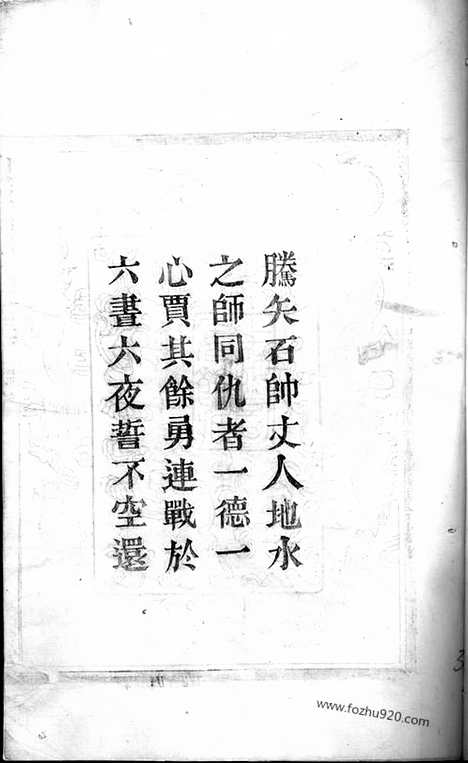 騰矢石帥丈人地水
之師同仇者一德一
心賈其餘勇連戰於
六晝六夜誓不空還
3
www.fozhu920.com